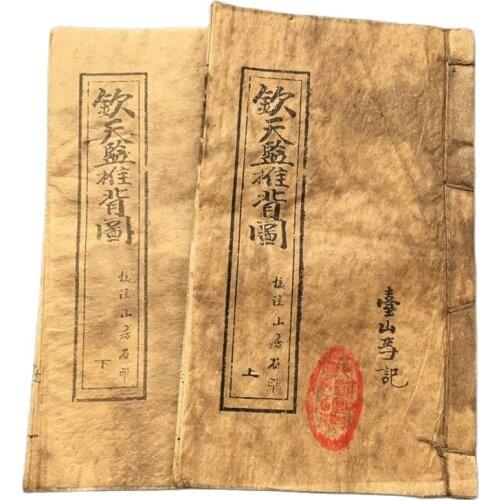 欽天監推背圖
山房石印
下
欽天監推背圖
山房石印
上
臺山李記